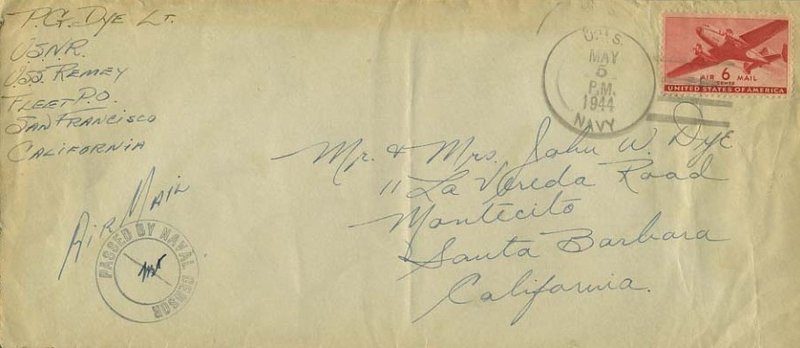 P.G. DYE LT.
USNR.
USS REMEY
FLEET P.O.
SAN FRANCISCO
CALIFORNIA
AIR MAIL
PASSED BY NAVAL CENSOR
MAY
5
P.M.
1944
NAVY
AIR 6 MAIL
CENTS
UNITED STATES OF AMERICA
Mr. & Mrs. John W. Dye
11 La Vereda Road
Montecito
Santa Barbara
California.